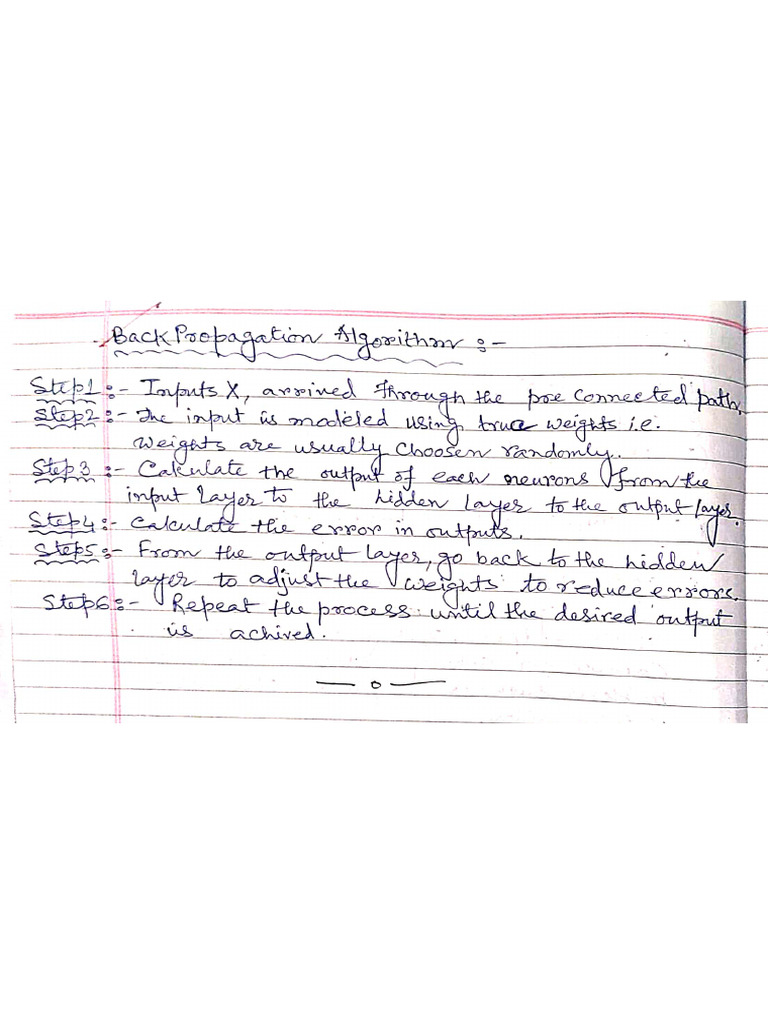 Back Propagation Algorithm :-
Step1 :- Inputs X, arrived through the pre connected path,
Step2 :- The input is modeled using true weights i.e.
weights are usually choosen randomly.
Step3 :- Calculate the output of each neurons from the
input layer to the hidden layer to the output layer.
Step4 :- Calculate the error in outputs.
Step5 :- From the output layer, go back to the hidden
layer to adjust the weights to reduce errors.
Step6 :- Repeat the process until the desired output
is achived.